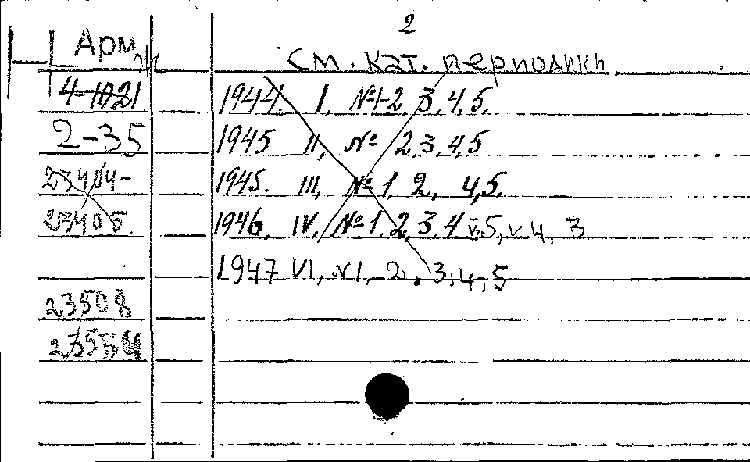 2
Арм.
См. кат. периодики
4-1021 1944. I, №1-2, 3, 4, 5.
2-35 1945 II, № 2, 3, 4, 5
23404- 1945. III, №1, 2, 4, 5.
23405. 1946. IV, №1, 2, 3, 4 v.5, v.4, 3
1947 VI, №1, -2, 3, 4, 5
23508